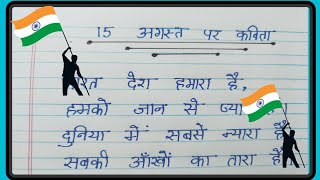 15 अगस्त पर कविता
देश हमारा है,
हमको जान से
दुनिया में सबसे न्यारा है
सबकी आँखों का तारा है